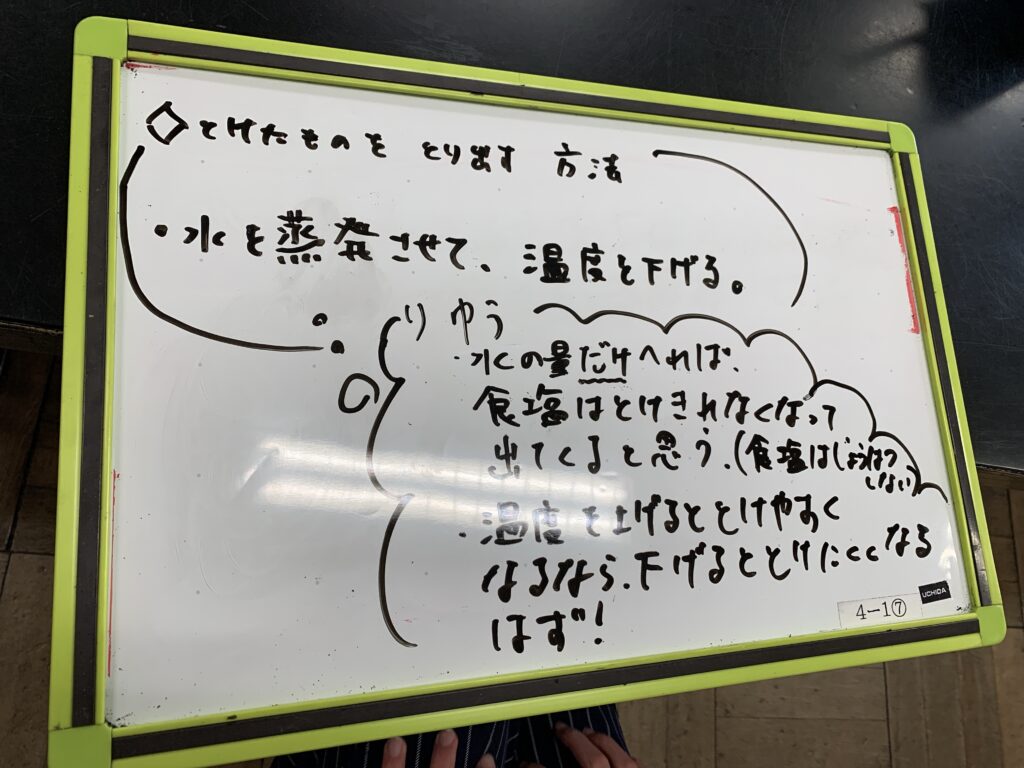 ◇とけたものを とり出す 方法
・水を蒸発させて、温度を下げる。
りゆう
・水の量だけへれば、
食塩はとけきれなくなって
出てくると思う。(食塩はじょうはつ
しない)
・温度を上げるととけやすく
なるなら、下げるととけにくくなる
はず!
4-1⑦
UCHIDA